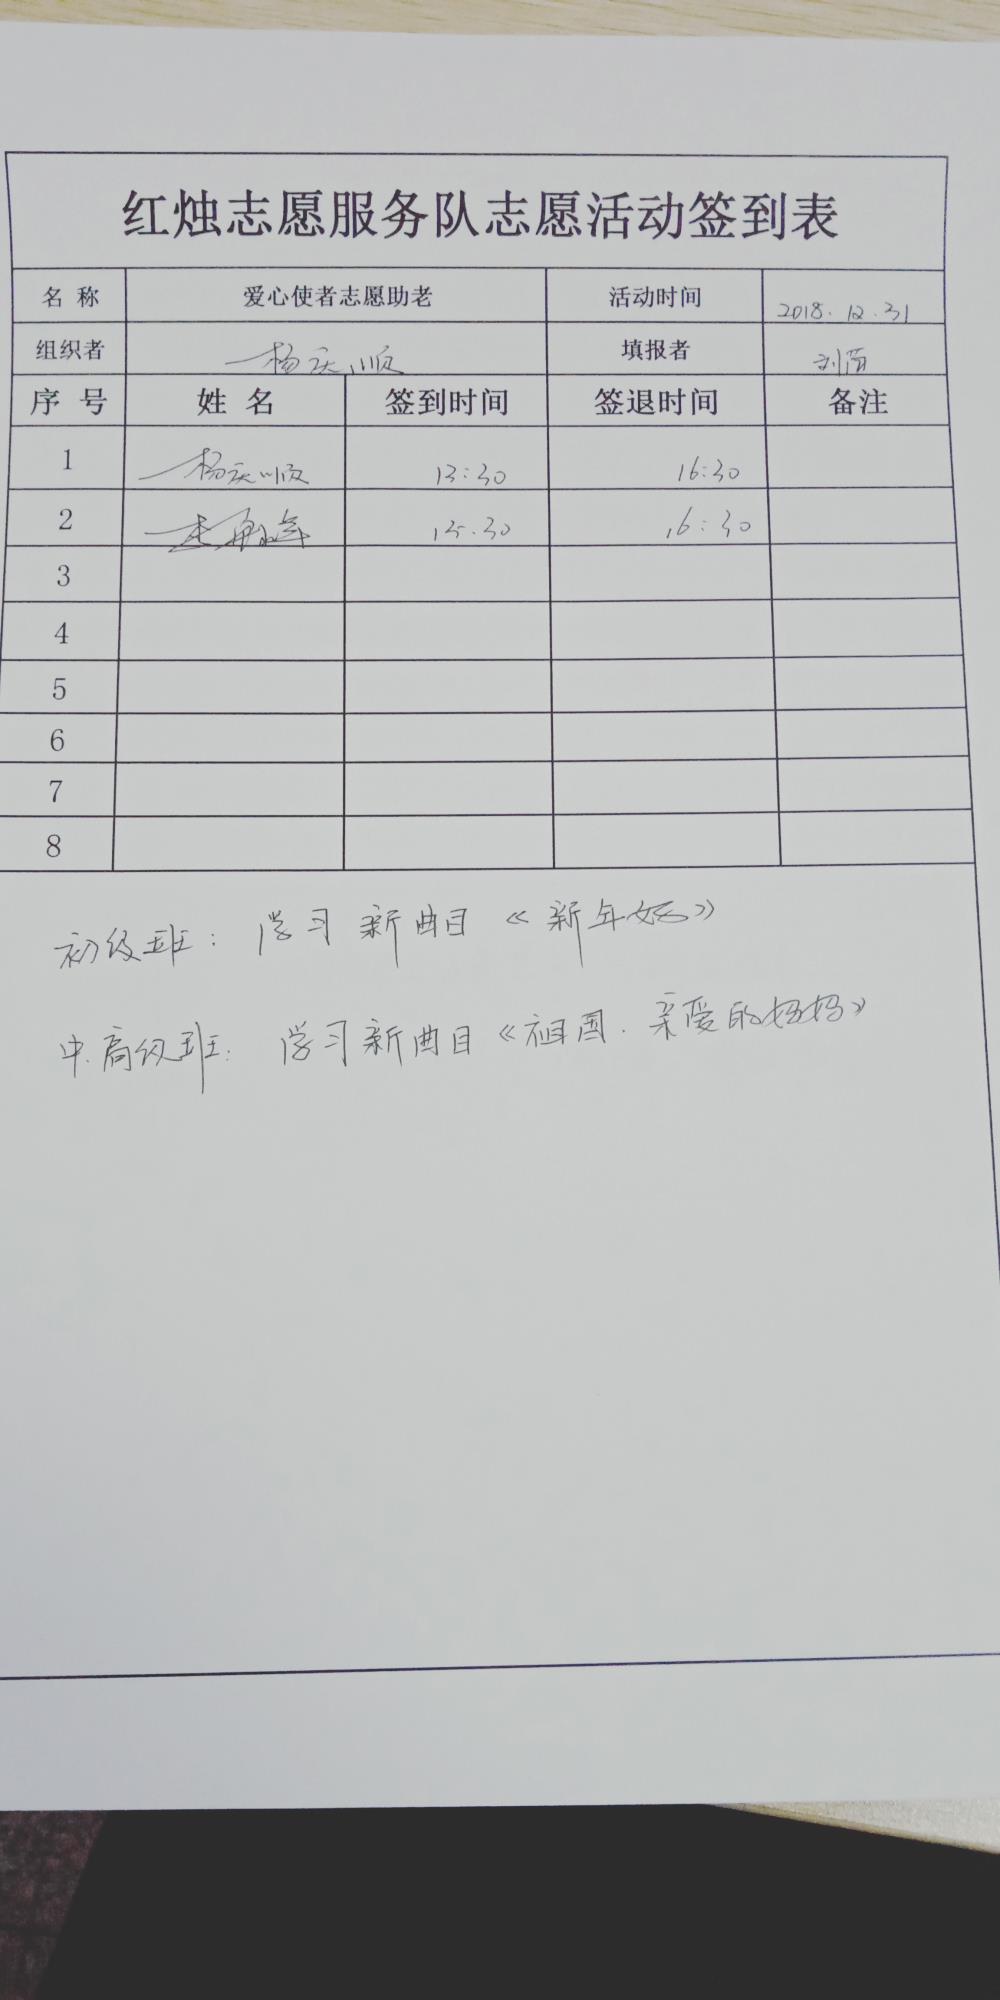 红烛志愿服务队志愿活动签到表
名 称 爱心使者志愿助老 活动时间 2018.12.31
组织者 杨庆顺 填报者 刘
序 号 姓 名 签到时间 签退时间 备注
1 杨庆顺 13:30 16:30
2 16:30
3
4
5
6
7
8
初级班: 学习新曲目《新年好》
中.高级班: 学习新曲目《祖国.亲爱的妈妈》